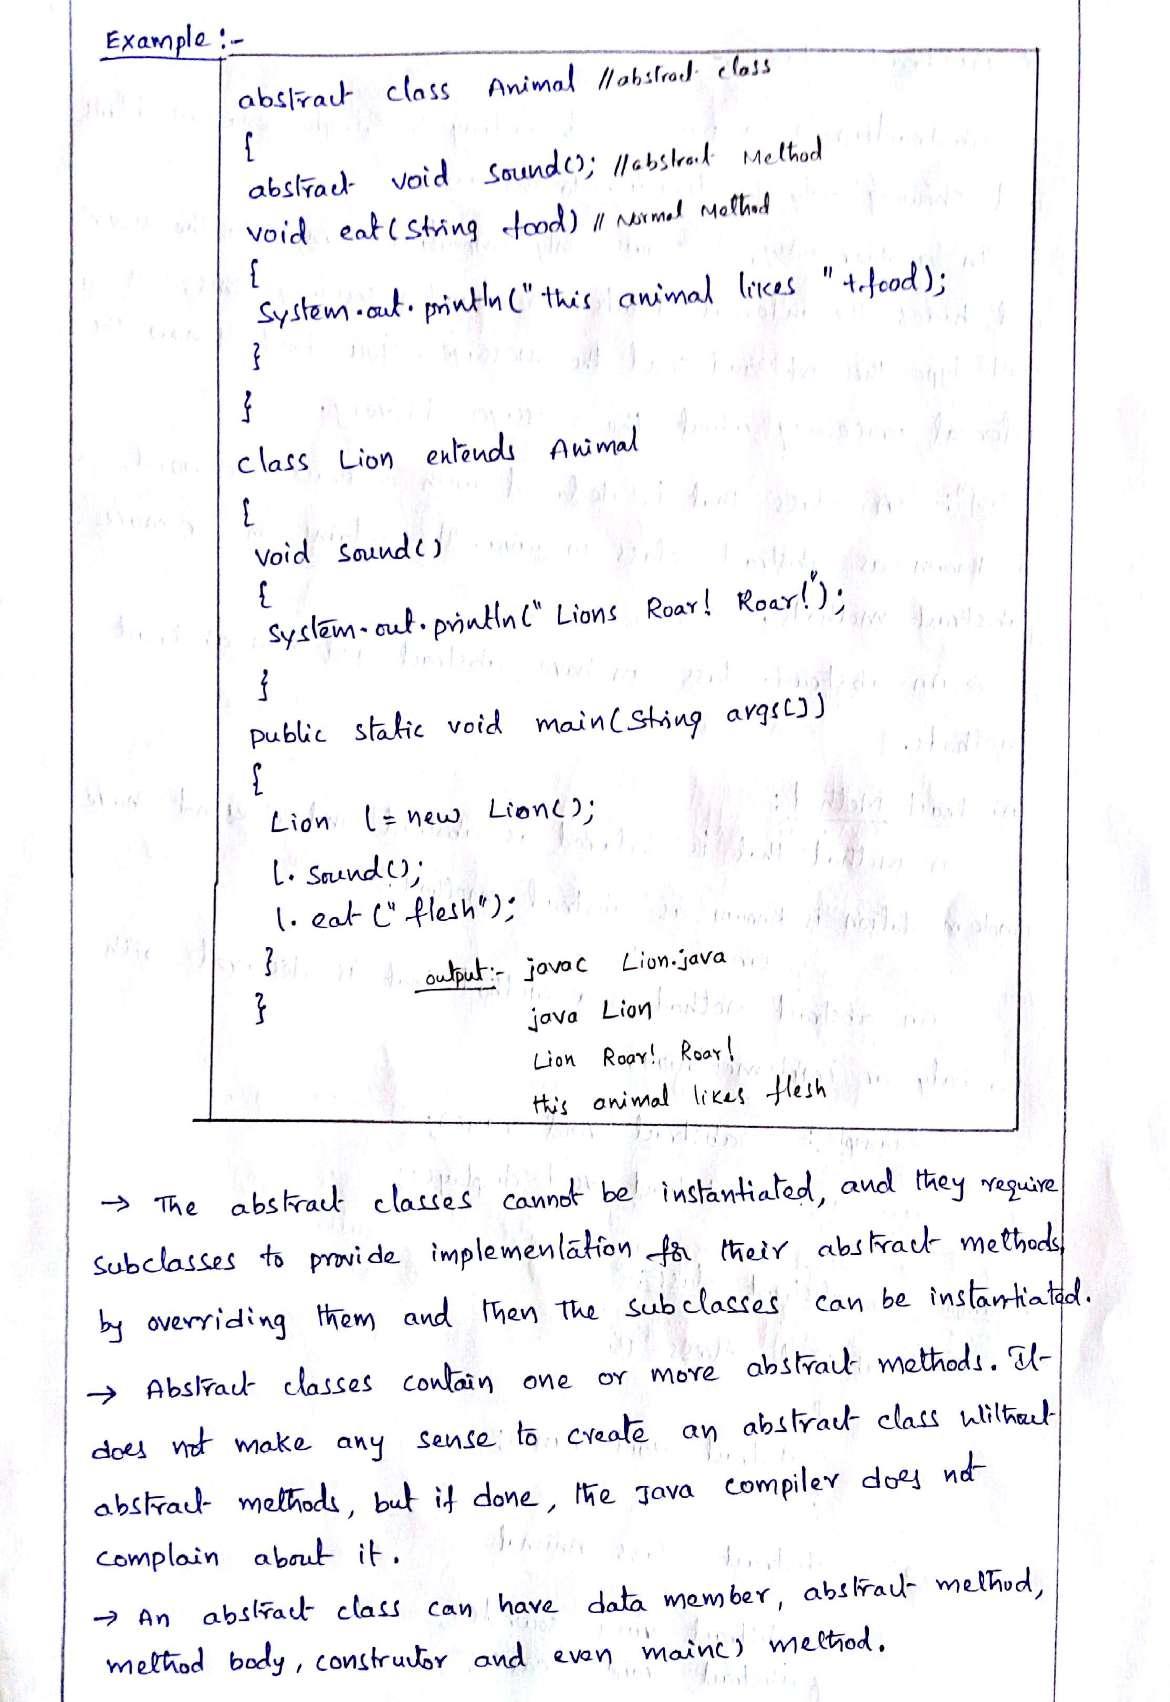 Example :-
abstract class Animal //abstract class
{
abstract void sound(); //abstract Method
void eat(String food) // Normal Method
{
System.out.println("this animal likes "+food);
}
}
class Lion extends Animal
{
void sound()
{
System.out.println("Lions Roar! Roar!");
}
public static void main(String args[])
{
Lion l = new Lion();
l.sound();
l.eat("flesh");
}
output:- javac Lion.java
}
java Lion
Lion Roar! Roar!
this animal likes flesh
→ The abstract classes cannot be instantiated, and they require
subclasses to provide implementation for their abstract methods
by overriding them and then the subclasses can be instantiated.
→ Abstract classes contain one or more abstract methods. It
does not make any sense to create an abstract class without
abstract methods, but if done, the Java compiler does not
complain about it.
→ An abstract class can have data member, abstract method,
method body, constructor and even main() method.